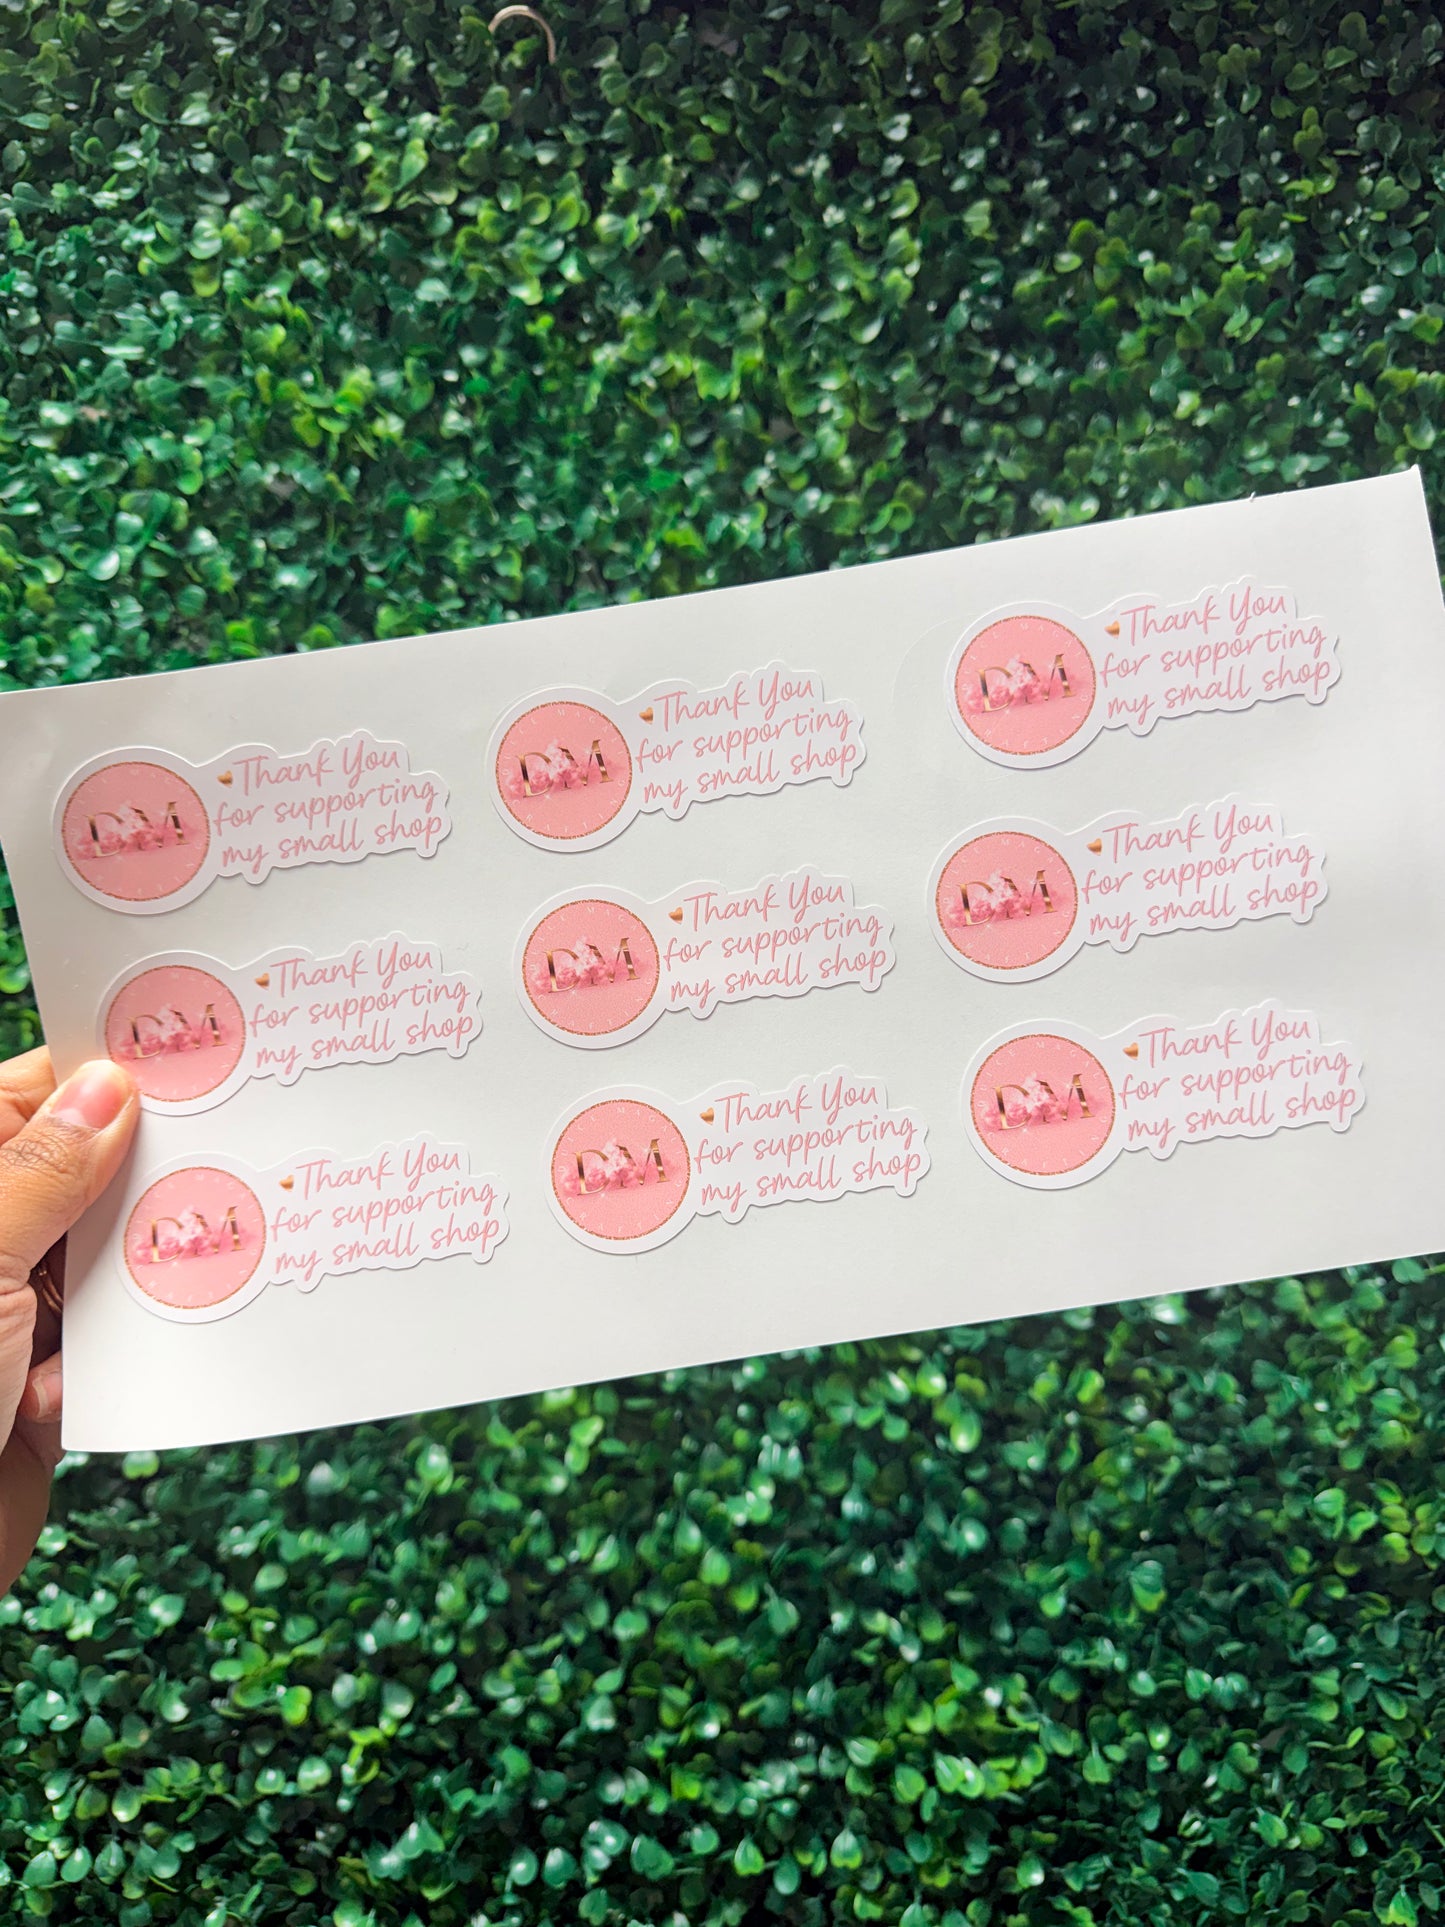 DM
Thank You
for supporting
my small shop
DM
Thank You
for supporting
my small shop
DM
Thank You
for supporting
my small shop
DM
Thank You
for supporting
my small shop
DM
Thank You
for supporting
my small shop
DM
Thank You
for supporting
my small shop
DM
Thank You
for supporting
my small shop
DM
Thank You
for supporting
my small shop
DM
Thank You
for supporting
my small shop